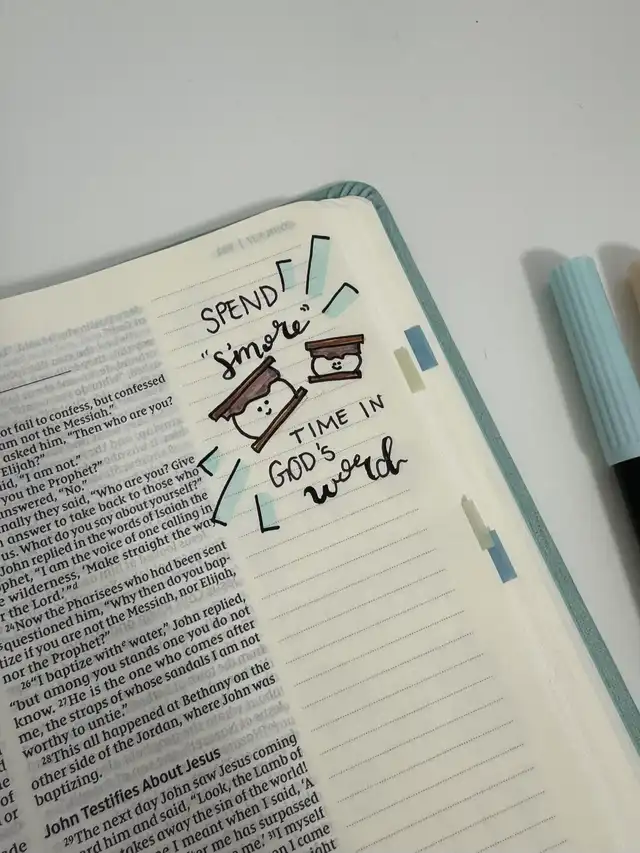 SPEND
"s'more"
TIME IN
GOD'S
word
ot fail to confess, but confessed
am not the Messiah."
asked him, "Then who are you?
Elijah?"
id, "I am not."
you the Prophet?"
answered, "No."
nally they said, "Who are you? Give
answer to take back to those who
us. What do you say about yourself?"
John replied in the words of Isaiah the
phet, "I am the voice of one calling in
e wilderness, 'Make straight the wa
r the Lord.'"
24Now the Pharisees who had been sent
questioned him, "Why then do you bap-
tize if you are not the Messiah, nor Elijah,
nor the Prophet?"
26"I baptize with water," John replied,
"but among you stands one you do not
know. 27He is the one who comes after
me, the straps of whose sandals I am not
worthy to untie."
28This all happened at Bethany on the
other side of the Jordan, where John was
baptizing.
John Testifies About Jesus
29The next day John saw Jesus coming
ard him and said, "Look, the Lamb of
takes away the sin of the world!
e I meant when I said, 'A
er me has surpassed
e me.' 31I myself
n I came